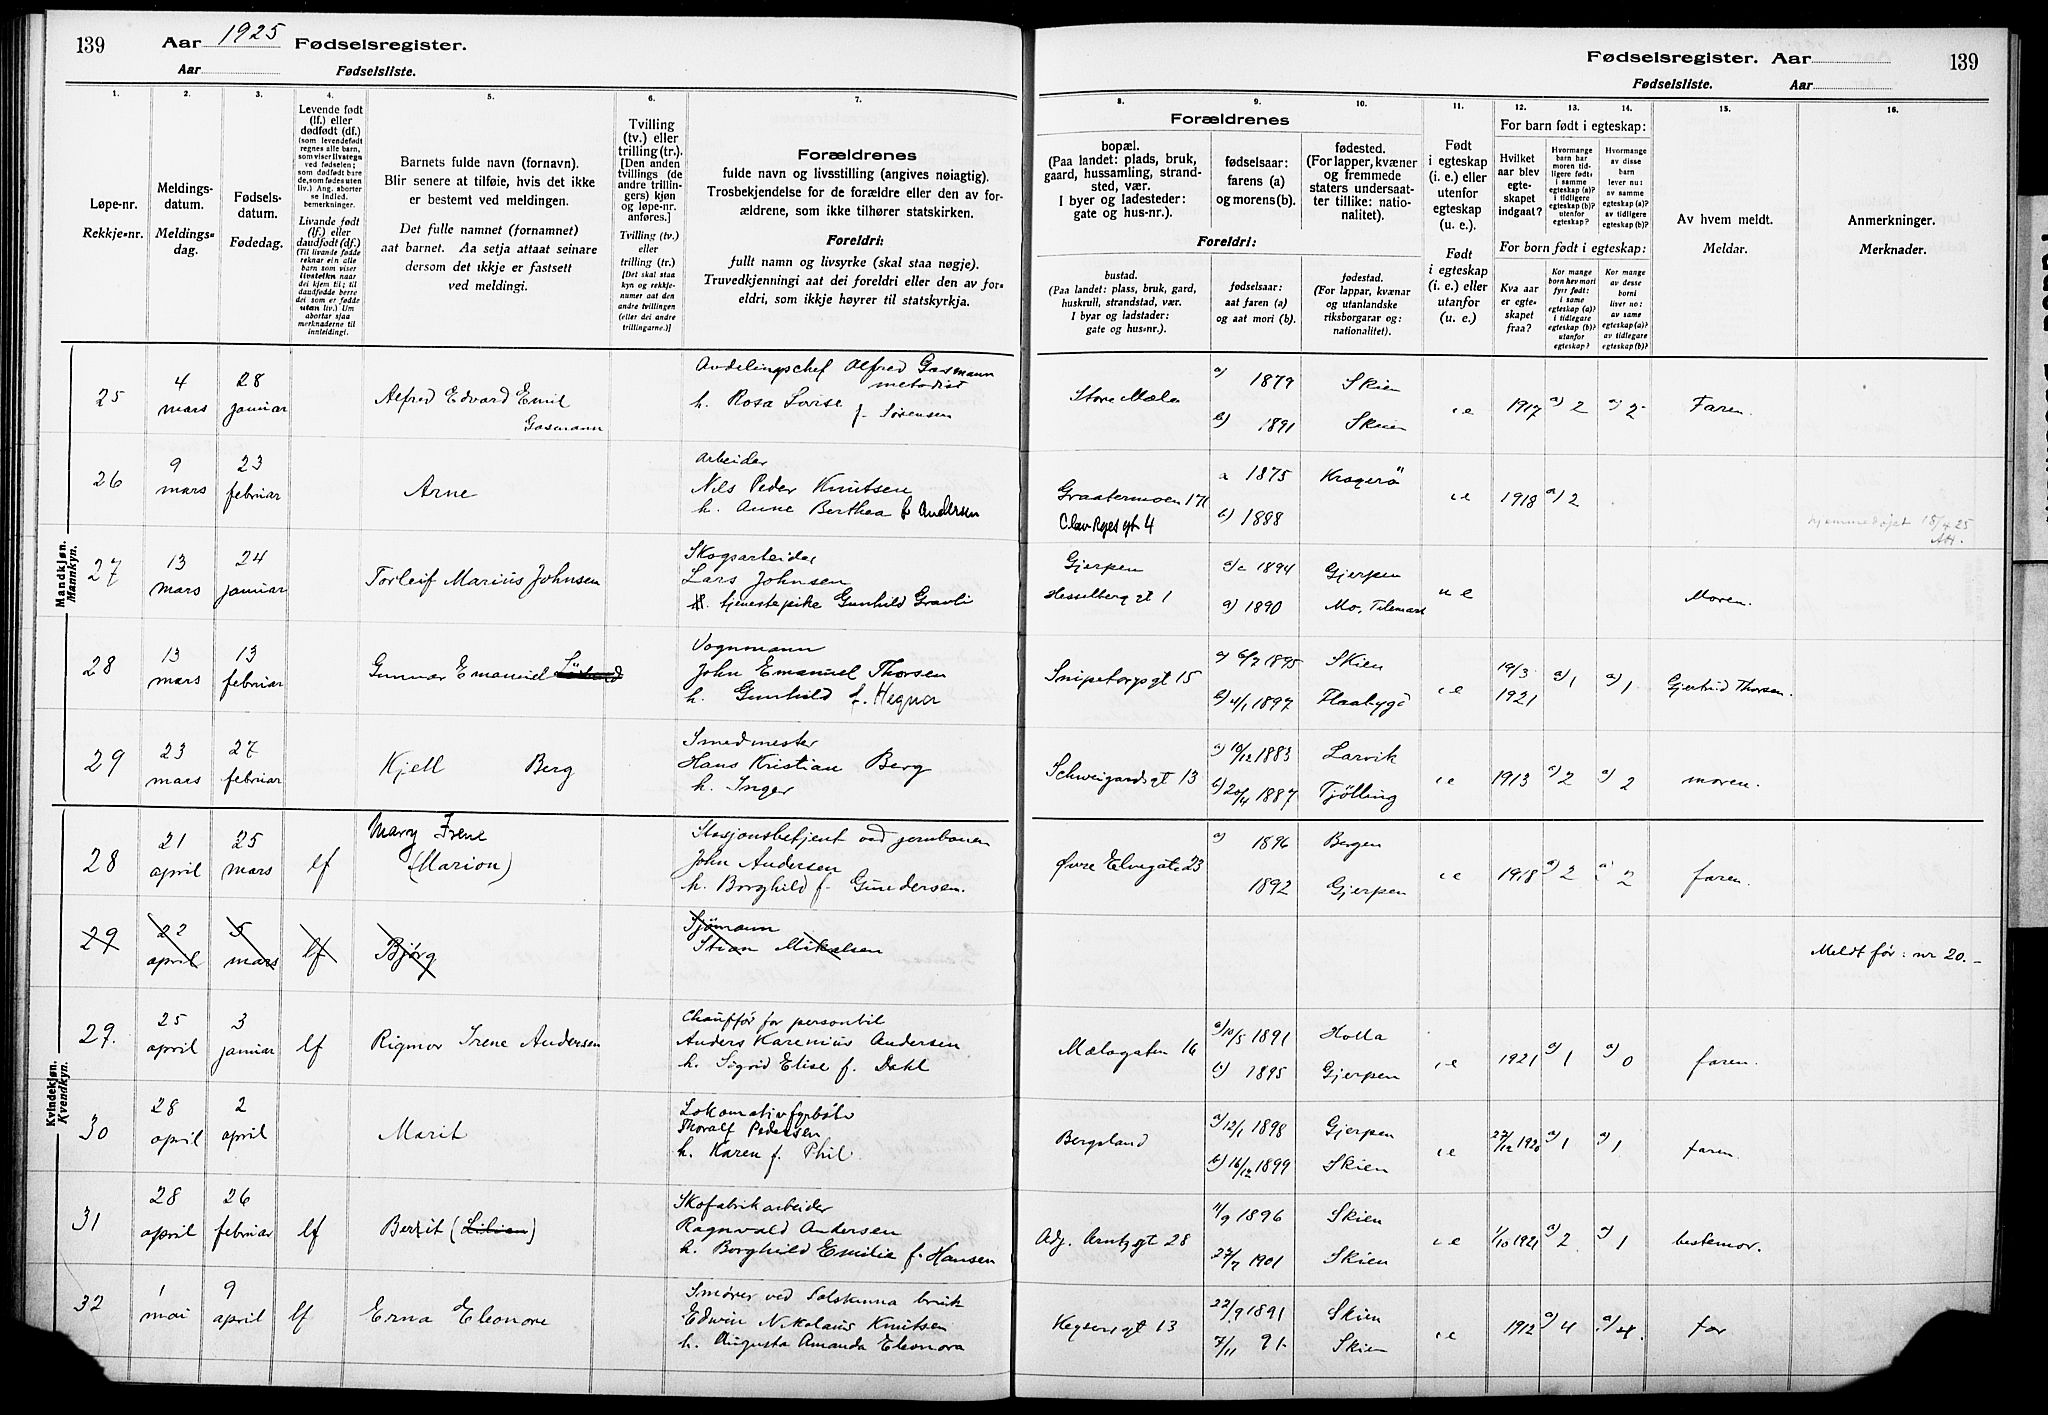 139 Aar 1925 Fødselsregister.
Aar Fødselsliste.
Fødselsregister. Aar 139
Fødselsliste. Aar
1. 2. 3. 4. 5. 6. 7.
Løpe-nr.
Rekkje-nr.
Meldings-
datum.
Meldings-
dag.
Fødsels-
datum.
Fødedag.
Levende født
(lf.) eller
dødfødt (df.)
(som levendefødt
regnes alle barn,
som viser livstegn
ved fødselen;
som dødfødt bare
de, som fødes uten
liv.) Ang. aborter
se indled.
bemerkninger.
Livande født
(lf.) eller
daudfødt (df.)
(Til livande fødde
reknar ein alle
barn som viser
livsteikn naar
dei kjem til; til
daudfødde berre
dei som er fødde
utan liv.) Um
abortar sjaa
merknaderne til
innleiding).
Barnets fulde navn (fornavn).
Blir senere at tilføie, hvis det ikke
er bestemt ved meldingen.
Det fulle namnet (fornamnet)
aat barnet. Aa setja attaat seinare
dersom det ikkje er fastsett
ved meldingi.
Tvilling
(tv.) eller
trilling (tr.).
[Den anden
tvillings (de
andre trillin-
gers) kjøn
og løpe-nr.
anføres.]
Tvilling (tv.)
eller
trilling (tr.)
[Det skal staa
kyn og rekkje-
numer aat den
andre tvillingen
(eller dei andre
trillingarne.)]
Forældrenes
fulde navn og livsstilling (angives nøiagtig).
Trosbekjendelse for de forældre eller den av for-
ældrene, som ikke tilhører statskirken.
Foreldri:
fullt namn og livsyrke (skal staa nøgje).
Truvedkjenningi aat dei foreldri eller den av for-
eldri, som ikkje høyrer til statskyrkja.
8. 9. 10. 11. 12. 13. 14. 15. 16.
Forældrenes
bopæl.
(Paa landet: plads, bruk,
gaard, hussamling, strand-
sted, vær.
I byer og ladesteder:
gate og hus-nr.).
fødselsaar:
farens (a)
og morens (b).
fødested.
(For lapper, kvæner
og fremmede
staters undersaat-
ter tillike: natio-
nalitet).
Foreldri:
bustad.
(Paa landet: plass, bruk, gard,
huskrull, strandstad, vær.
I byar og ladstader:
gate og hus-nr.).
fødselsaar:
aat faren (a)
og aat mori (b).
fødestad.
(For lappar, kvænar
og utanlandske
riksborgarar og:
nationalitet).
Født
i egteskap
(i. e.) eller
utenfor
egteskap
(u. e.).
Født
i egteskap
(i. e.) eller
utanfor
(u. e.).
For barn født i egteskap:
Hvilket
aar blev
egte-
skapet
indgaat?
Hvormange
barn har
moren tid-
ligere født:
i samme
egteskap (a)?
i tidligere
egteskap (b)?
utenfor
egteskap?
Hvormange
av disse
barn
lever nu:
av samme
egteskap (a)?
av tidligere
egteskap (b)?
For born født i egteskap:
Kva aar
er egte-
skapet
fraa?
Kor mange
born hev mori
fyrr født:
i same
egteskap (a)?
i tidlegare
egteskap (b)?
utanfor
egteskap?
Kor mange
av desse
borni
liver no:
av same
egteskap (a)?
av tidlegare
egteskap (b)?
Av hvem meldt.
Meldar.
Anmerkninger.
Merknader.
Mandkjøn.
Mannkyn.
25 4 mars 28 januar Alfred Edvard Emil Gasmann
Avdelingschef Alfred Gasmann
metodist
h. Rosa Lovise f. Sørensen
Store Mæla a) 1879 Skien
b) 1891 Skien
i e 1917 a) 2 a) 2 Faren.
26 9 mars 23 februar Arne
Arbeider
Nils Peder Knutsen
h. Anne Berthea f Andersen
Graatenmoen 171 a 1875 Kragerö
b) 1898
i e 1918 a) 2
hjemmedøpt 15/4 25
27 13 mars 24 januar Torleif Marius Johnsen
Skogsarbeider
Lars Johnsen
tjenestepike Gunhild Gravli
Gjerpen 1894 Gjerpen
Hesselberg gt 1 1890 Mo, Telemark
u e Moren.
28 13 mars 13 februar Gunnar Emanuel
Vognmann
John Emanuel Thorsen
h. Gunhild f. Hegna
Snipetorpgt 15 a) 6/7 1895 Skien
b) 4/1 1897 Flaabygd
i e 19/3 1921 a) 1 a) 1 Gjertrud Thorsen.
29 23 mars 27 februar Kjell Berg
Smedmester
Hans Kristian Berg
h. Inger
Schweigaardsgt 13 a) 10/12 1883 Larvik
b) 20/4 1887 Tjølling
i e 1913 a) 2 a) 2 moren.
Kvindekjøn.
Kvendkyn.
28 21 april 25 mars lf Mary Irene
(Marion)
Stasjonsbetjent ved jernbanen
John Andersen
h. Borghild f. Gundersen.
Øvre Elvegate 23 a) 1896 Bergen
1892 Gjerpen
i e 1918 a) 2 2 faren.
29 22 april 5 mars lf Bjørg
Sjømann
Stian Mikalsen
Meldt før: nr 20.-
29. 25 april 3 januar lf Rigmor Irene Andersen
Chauffør for personbil
Anders Karenius Andersen
h. Sigrid Elise f. Dahl
Mælagaten 16 a) 10/5 1891 Holla
b) 1895 Gjerpen
i e 1921 a) 1 a) 0 faren.
30 28 april 2 april Marit
Lokomotivfyrbøter
Thoralf Pedersen
h. Karen f. Phil.
Bergsland a) 12/1 1898 Gjerpen
b) 16/12 1899 Skien
i e 27/12 1920 a) 1 a) 1 faren.
31 28 april 26 februar lf Berit (Lilian)
Skofabrikarbeider
Ragnvald Andersen
h. Borghild Emilie f. Hansen
Adj. Arntzgt 28 11/9 1896 Skien
27/7 1901 Skien
i e 1/10 1921 a) 2 a) 1 bestemor.
32 1 mai 9 april lf Erna Eleonore
Smører ved Solskinna bruk
Edwin Nikolaus Knutsen
h. Augusta Amanda Eleonora
Keysersgt 13 22/9 1891 Skien
7/11 91 Skien
i e 1912 a) 4 a) 4. far